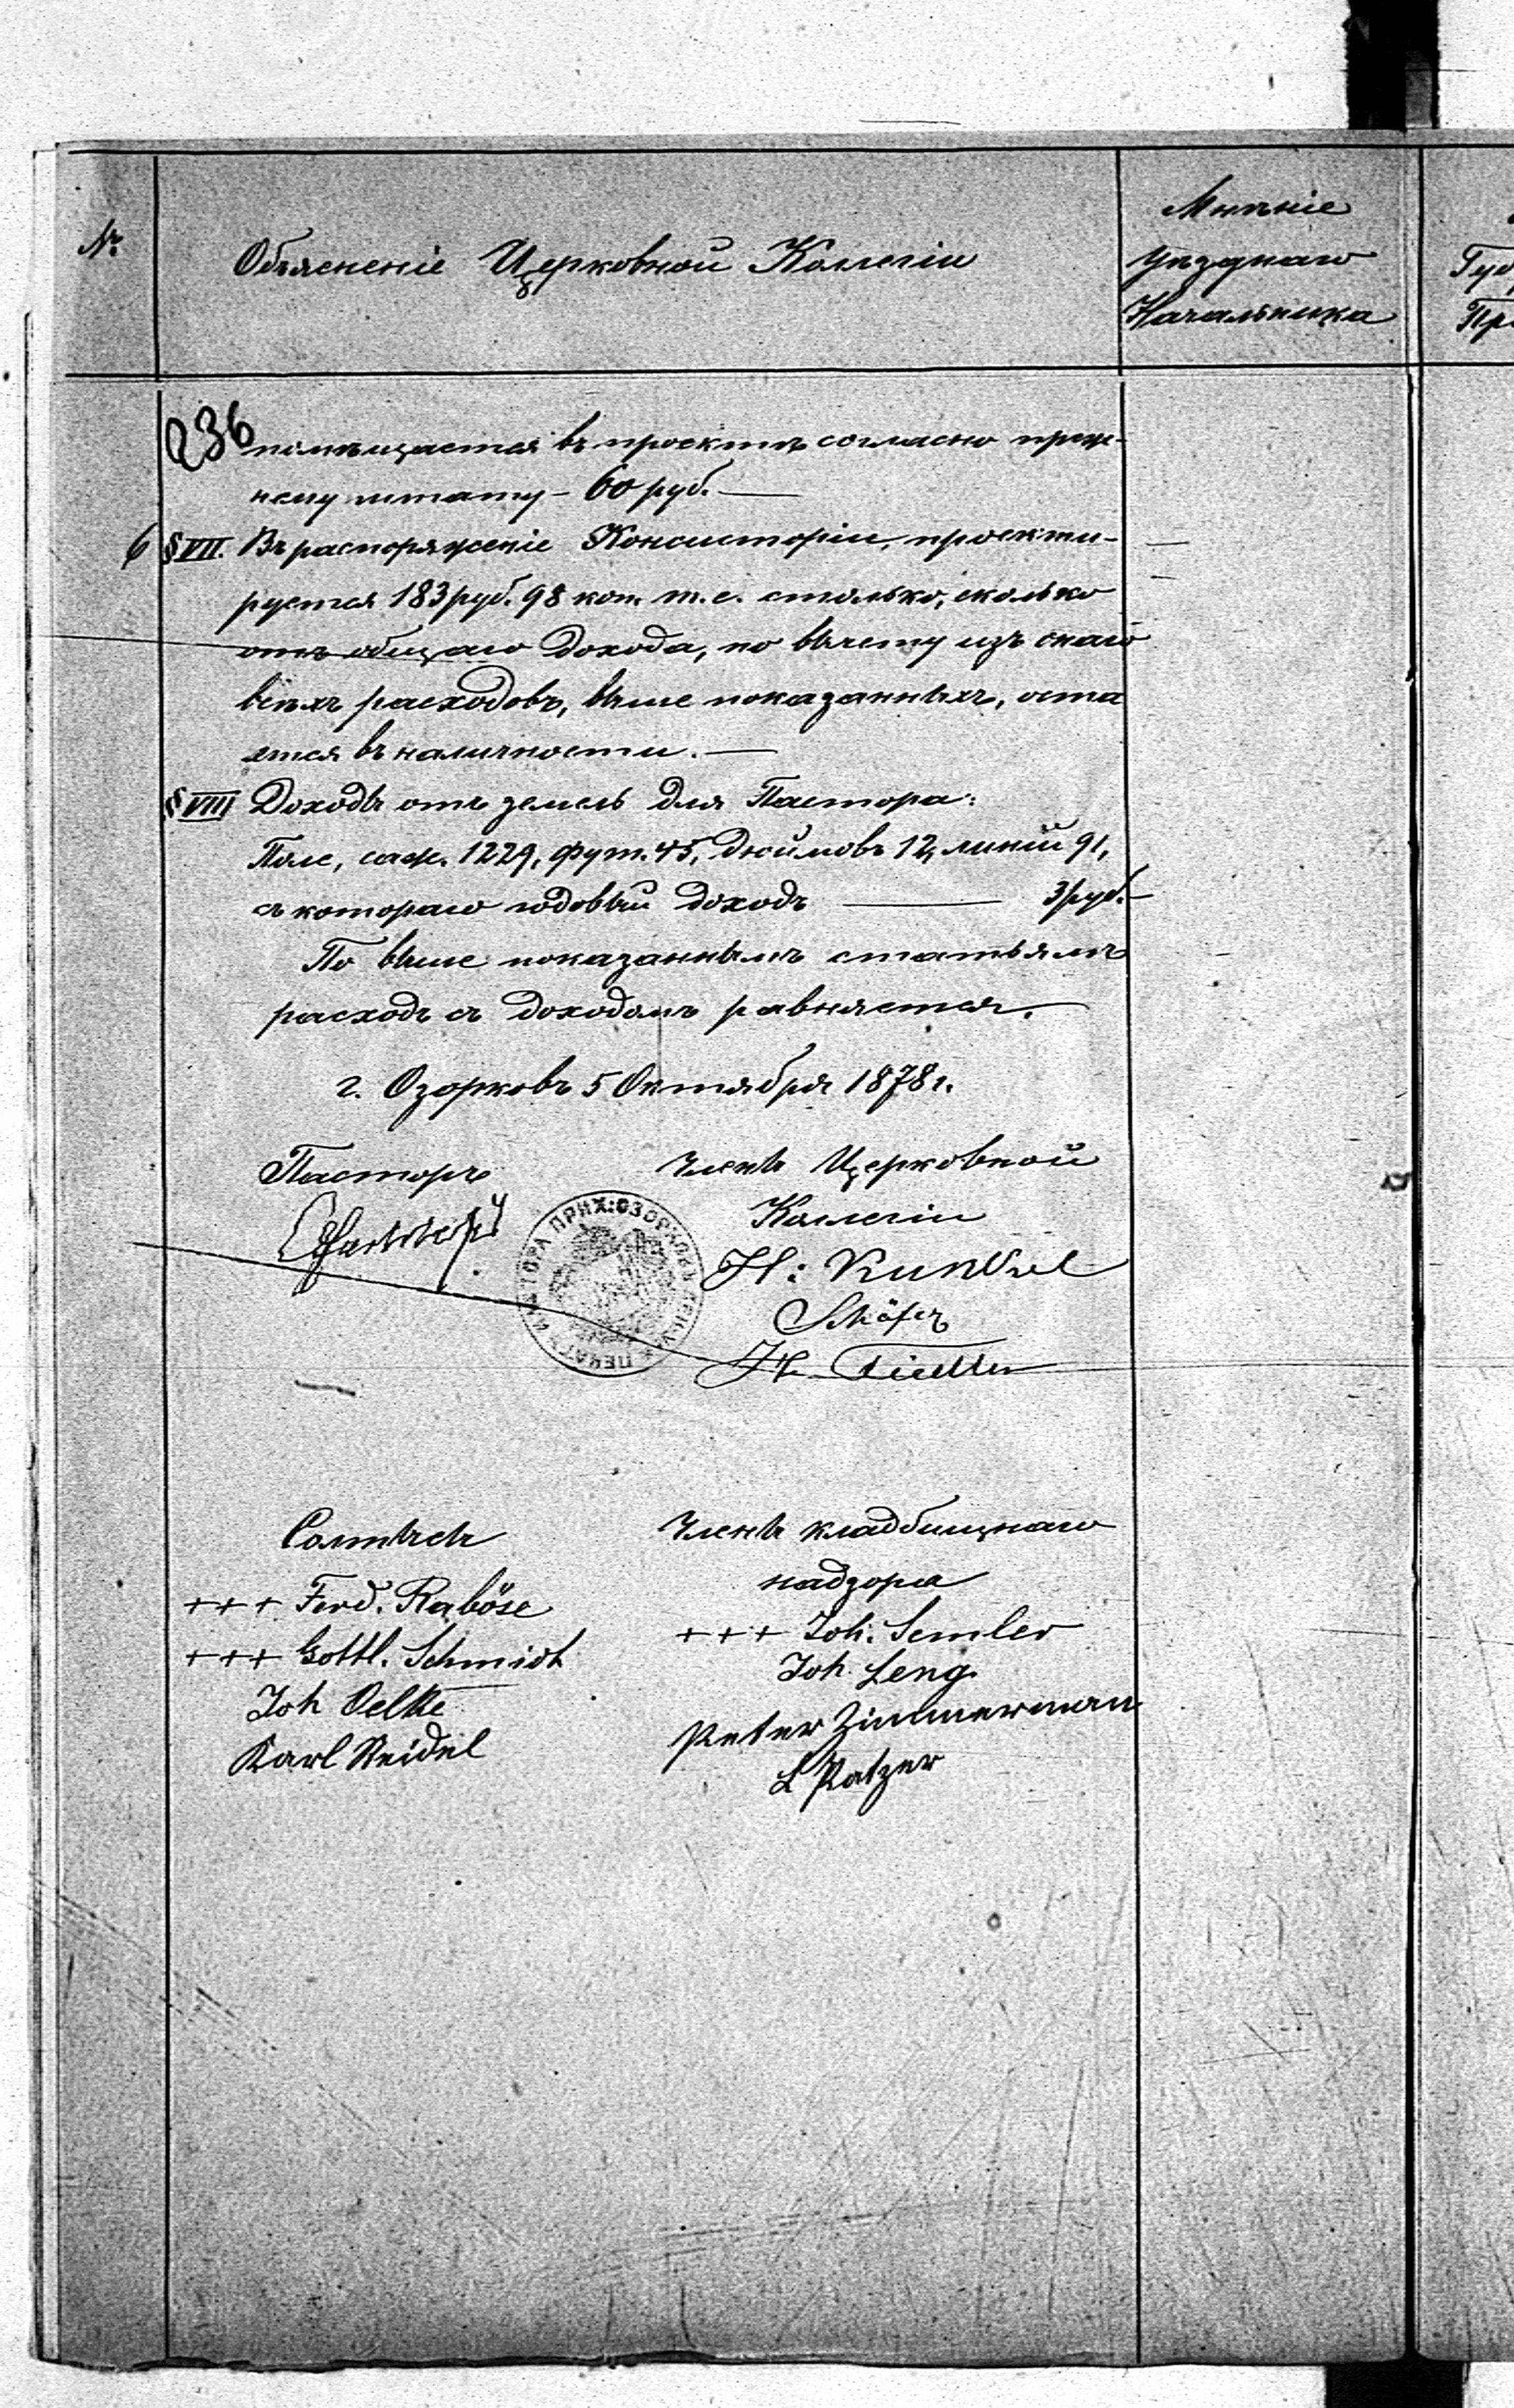 №
Объясненіе Церковной Коллегіи
Мнѣніе
Уѣзднаго
Начальника
236
помѣщается въ проектѣ согласно преж-
нему штату – 60 руб. —
6 § VII. Въ распоряженіе Консисторіи, проекти-
руется 183 руб. 98 коп. т.е. столько, сколько
отъ общаго дохода, по вычету изъ онаго
всѣхъ расходовъ, выше показанныхъ, оста
ется въ наличности. —
§ VIII Доходы отъ земель для Пастора:
Поле, саж. 1229, фут. 45, дюймовъ 12, линій 91,
съ котораго годовый доходъ — 3 руб. –
По выше показаннымъ статьямъ
расходъ съ доходомъ равняется. —
г. Озорковъ 5 Октября 1878 г.
Пасторъ
Члены Церковной
Коллегіи
ПРИХ: ОЗОРКОВЪ
ПЕЧАТЬ
H: Kunkel
Schäfer
H. Fiedler
Солтысы
Члены кладбищнаго
надзора
+++ Ferd. Raböse
+++ Joh. Semler
+++ Gottl. Schmidt
Joh. Leng
Joh Oelke
Peter Zimmerman
Karl Neidel
L Patzer